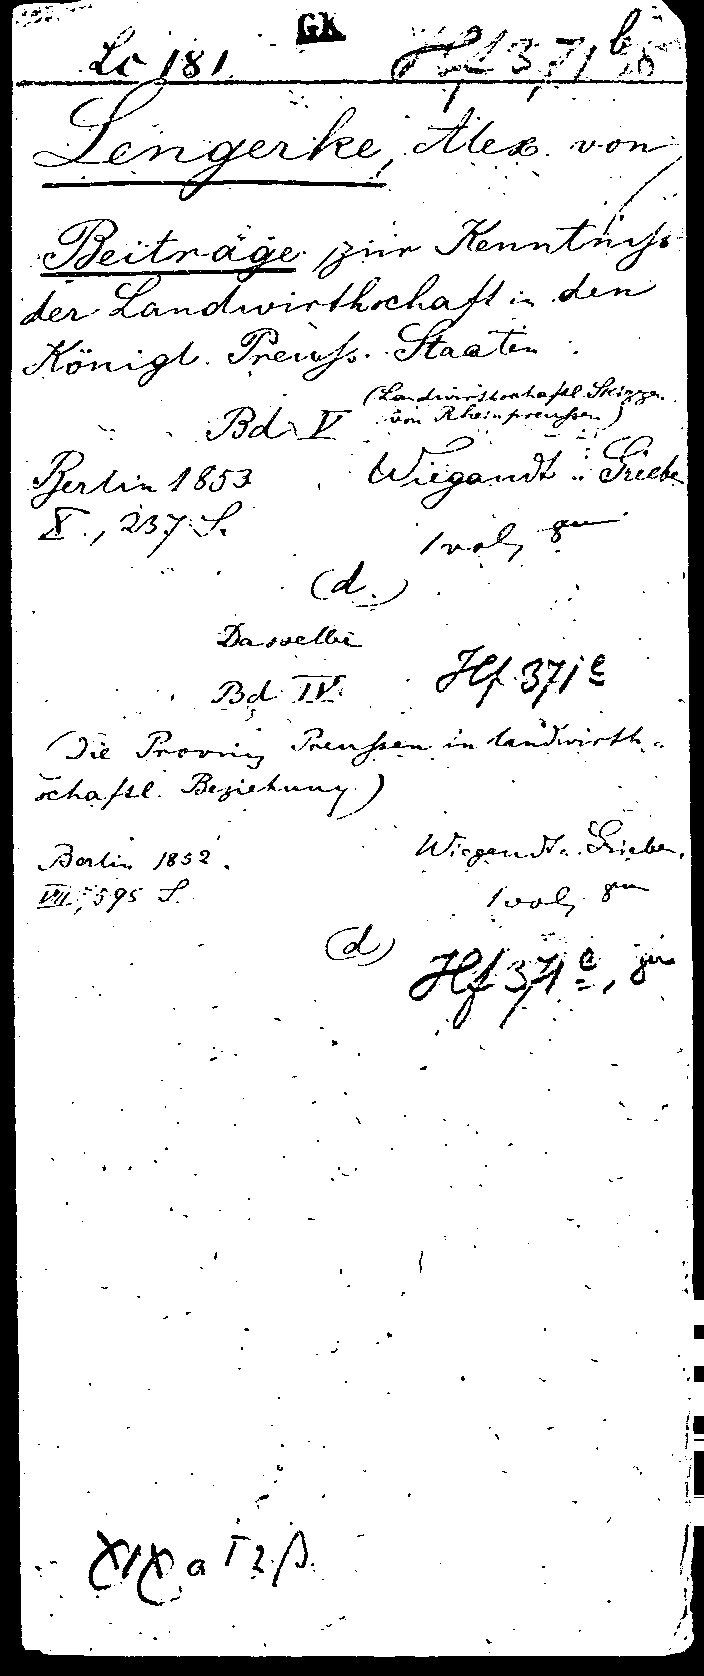 GK
Lc 181. Hf 371 b, 8
Lengerke, Alex. von
Beiträge zur Kenntniss
der Landwirthschaft in den
Königl. Preuss. Staaten
(Landwirthschaftl. Skizzen
Bd. V von Rheinpreussen)
Berlin 1853 Wiegandt u. Grieben
X, 237 S. 1 vol,
(d.)
Dasselbe
Bd. IV. Hf. 371 e
(Die Provinz Preussen in landwirth-
schaftl. Beziehung)
Berlin 1852. Wiegandt u. Grieben.
VII, 595 S. 1 vol,
(d)
Hf 371 e,
XIX a I 2. β.